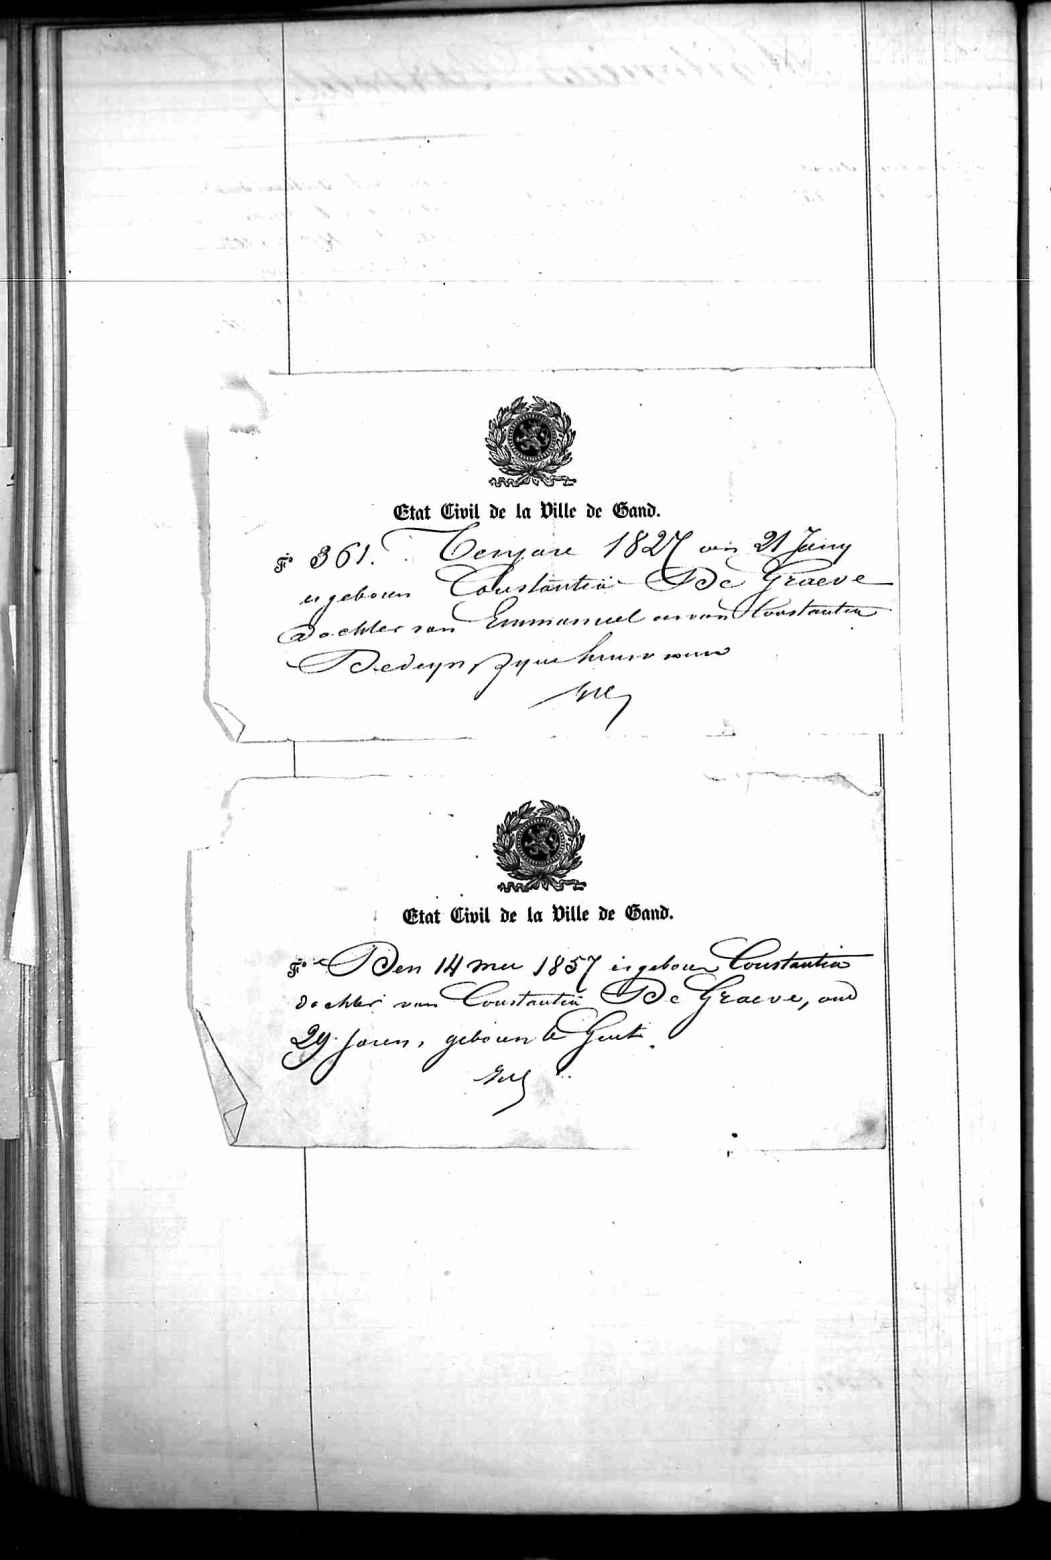 Etat Civil de la Ville de Gand.
F° 361. Ten jare 1827 den 21 Juny
is geboren Constantia De Graeve
dochter van Emmanuel en van Constantia
Bedeyn, zyne huisvrouw
Etat Civil de la Ville de Gand.
F° Den 14 mei 1857 is geboren Constantia
dochter van Constantia De Graeve, oud
29 jaren, geboren te Gent.